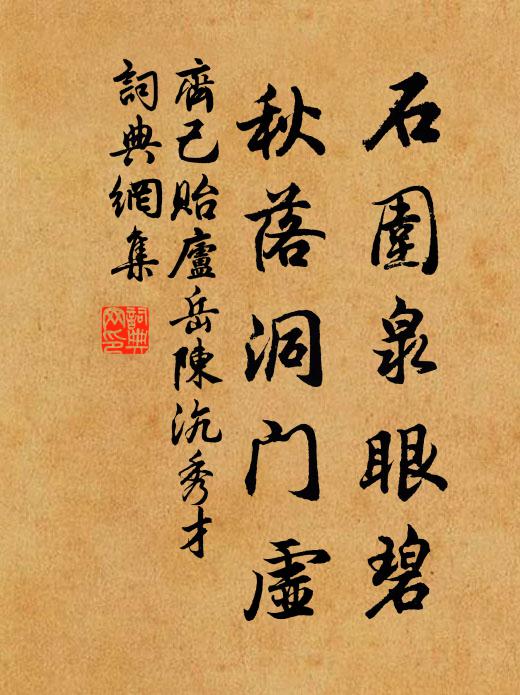 石圍泉眼碧
秋落洞门虛
齊己貽廬岳陳沆秀才
詞典網集
詞典网印